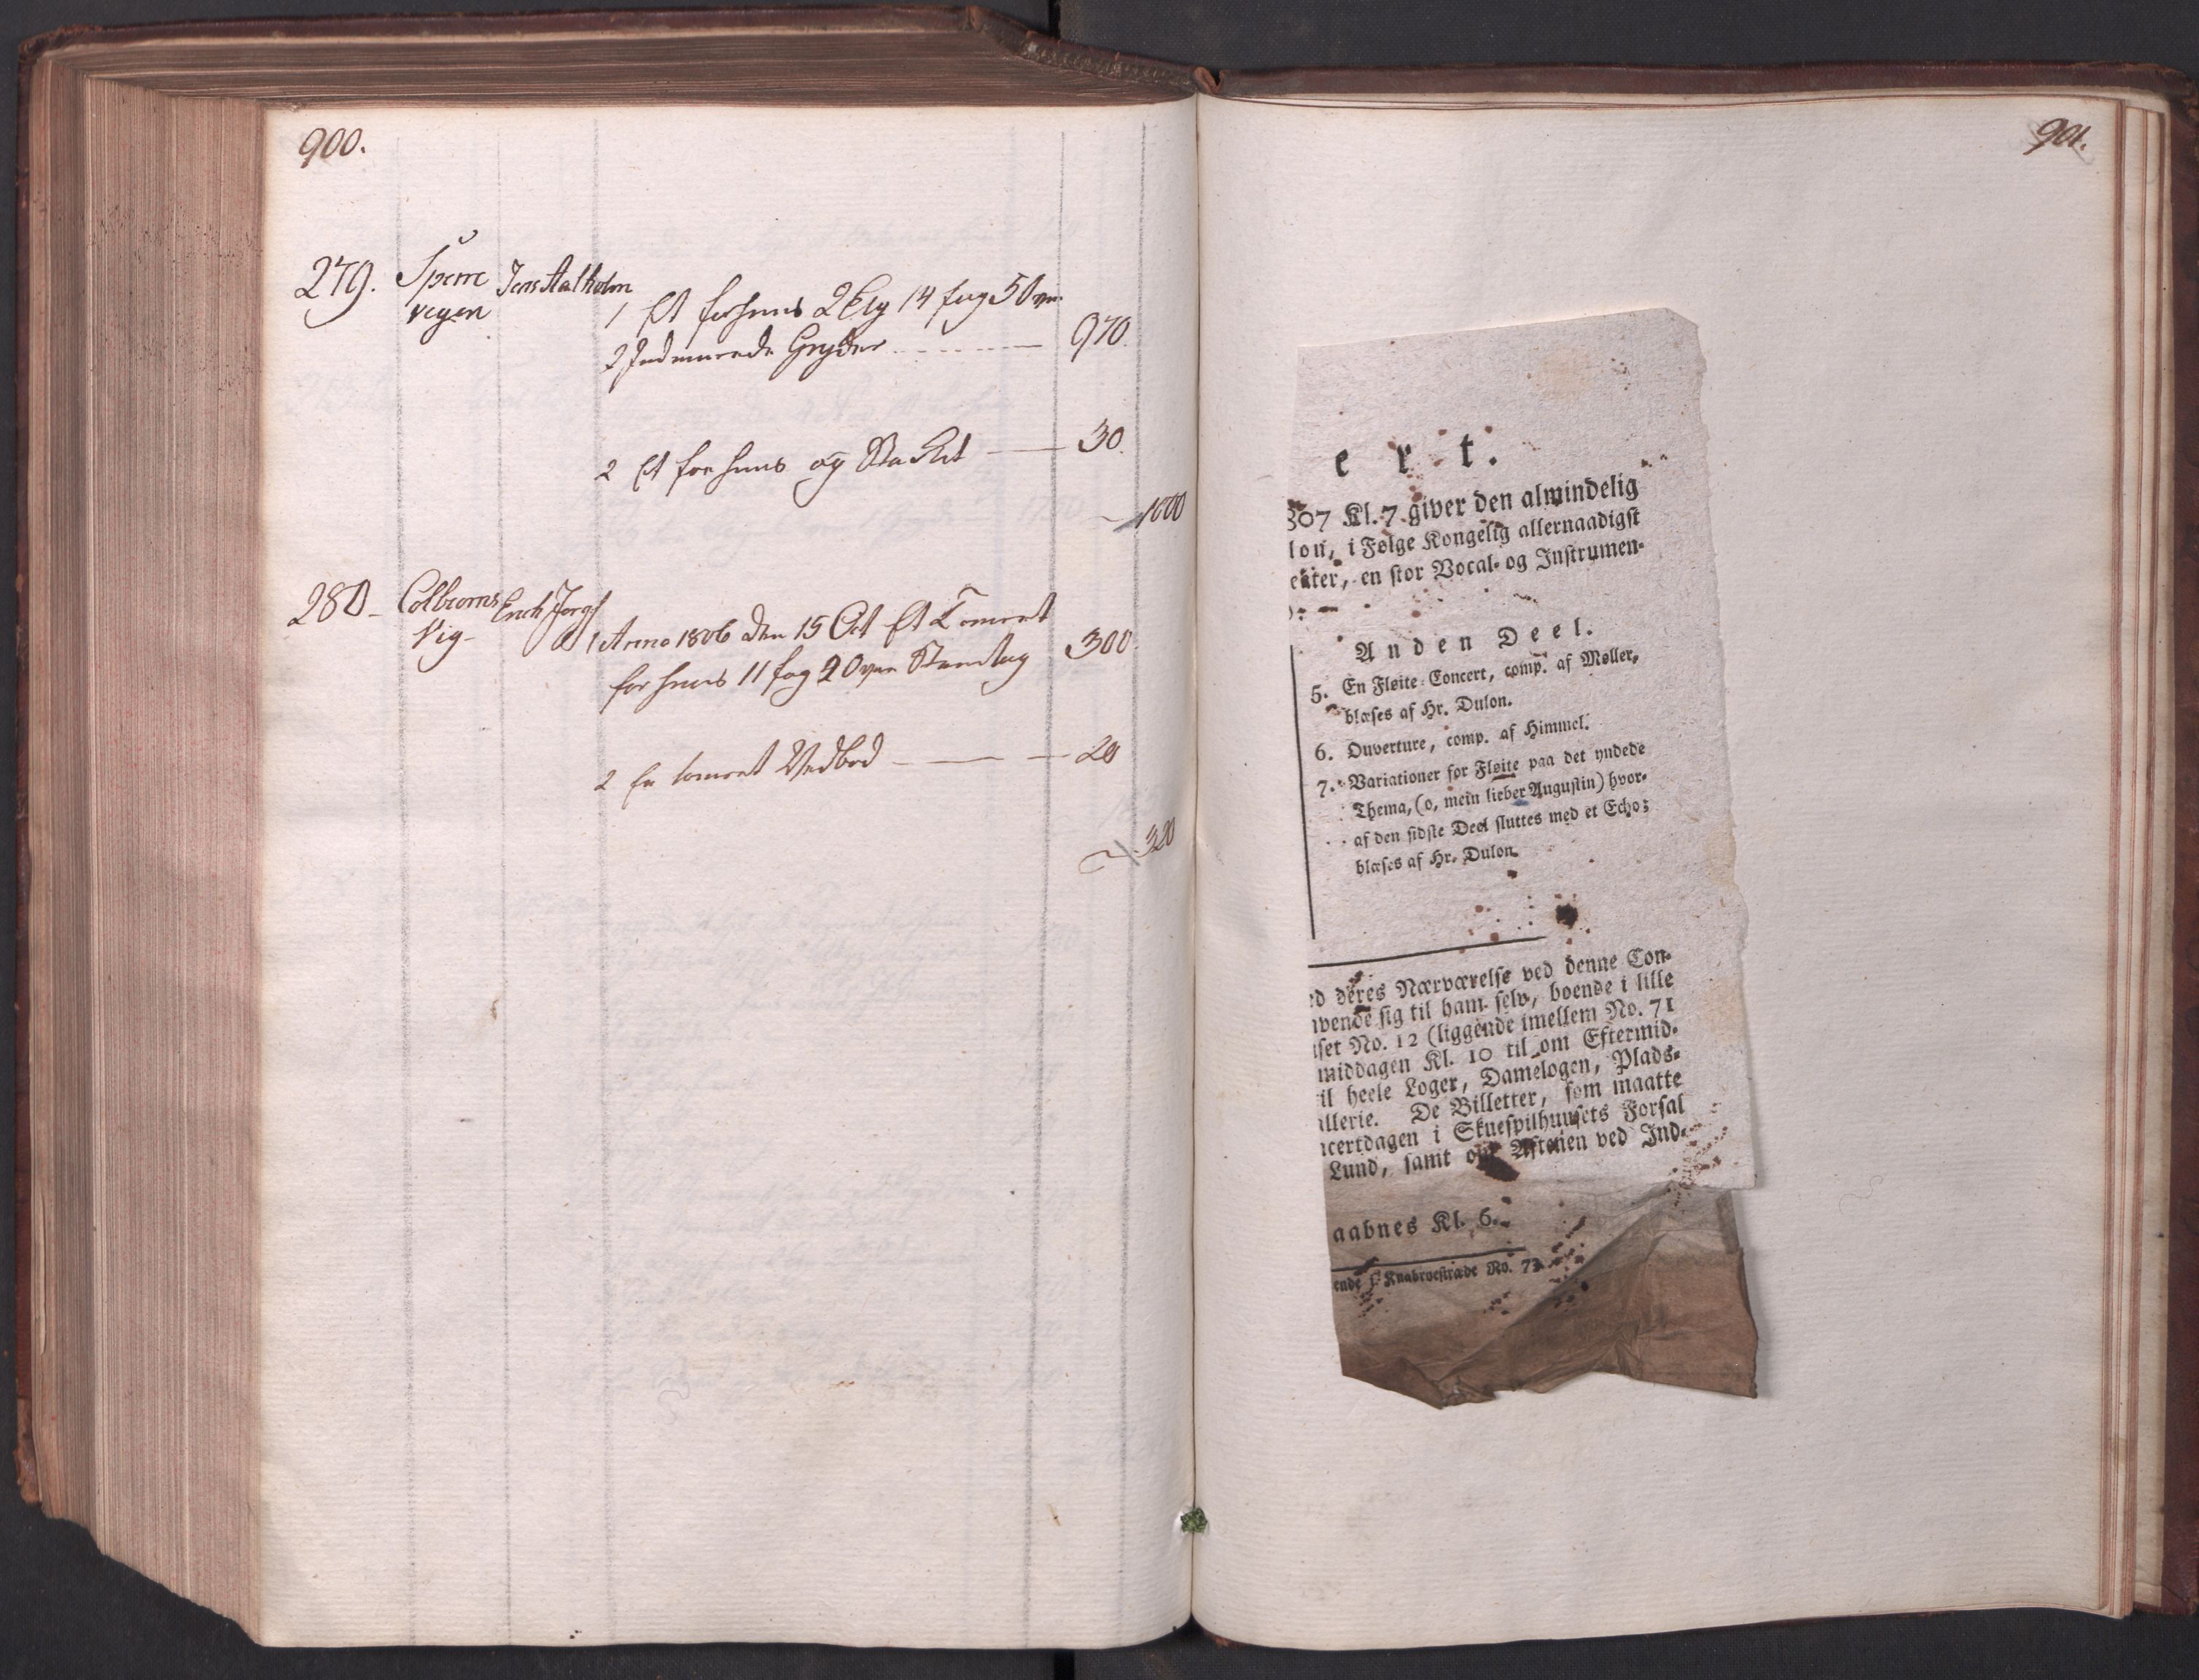 900.
279. Jens Aalholm
vegen
1 Et forhuus 2 Etg 14 fag 5 Ovne
2 Indmurede Gryder 970.
2 Et forhuus og Stackit 30.
1000
280 Erich
Vig
1 Anno 1806 den 15 Oct Et Tømret 300
forhuus 11 fag 2 Ovne
2 En tømret Vedbod 20
320
901.
ert.
307 Kl. 7 giver den almindelig
lon, i Følge Kongelig allernaadigst
eater, en stor Vocal- og Instrumen-
Anden Deel.
5. En Fløite-Concert, comp. af Møller,
blæses af Hr. Dulon.
6. Ouverture, comp. af Himmel.
7. Variationer for Fløite paa det yndede
Thema, (o, mein lieber Augustin) hvor-
af den sidste Deel sluttes med et Echo;
blæses af Hr. Dulon.
ed deres Nærværelse ved denne Con-
wende sig til ham selv, boende i lille
set No. 12 (liggende imellem No. 71
middagen Kl. 10 til om Eftermid-
il heele Loger, Damelogen, Plads-
llerie. De Billetter, som maatte
certdagen i Skuespilhuusets Forsal
Lund, samt om Aftenen ved Ind-
aabnes Kl. 6.
ende i Knabroestræde No. 73